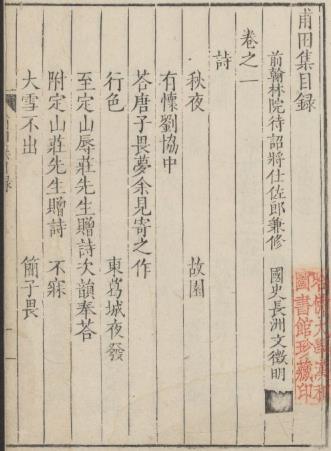 甫田集目録
卷之一
前翰林院待詔將仕佐郎兼修　國史長洲文徵明
詩
秋夜　故園
有懷劉協中
答唐子畏夢余見寄之作
行色　東葛城夜發
至定山辱莊先生贈詩次韻奉答
附定山莊先生贈詩　不寐
大雪不出　簡子畏
圖書館珍藏印